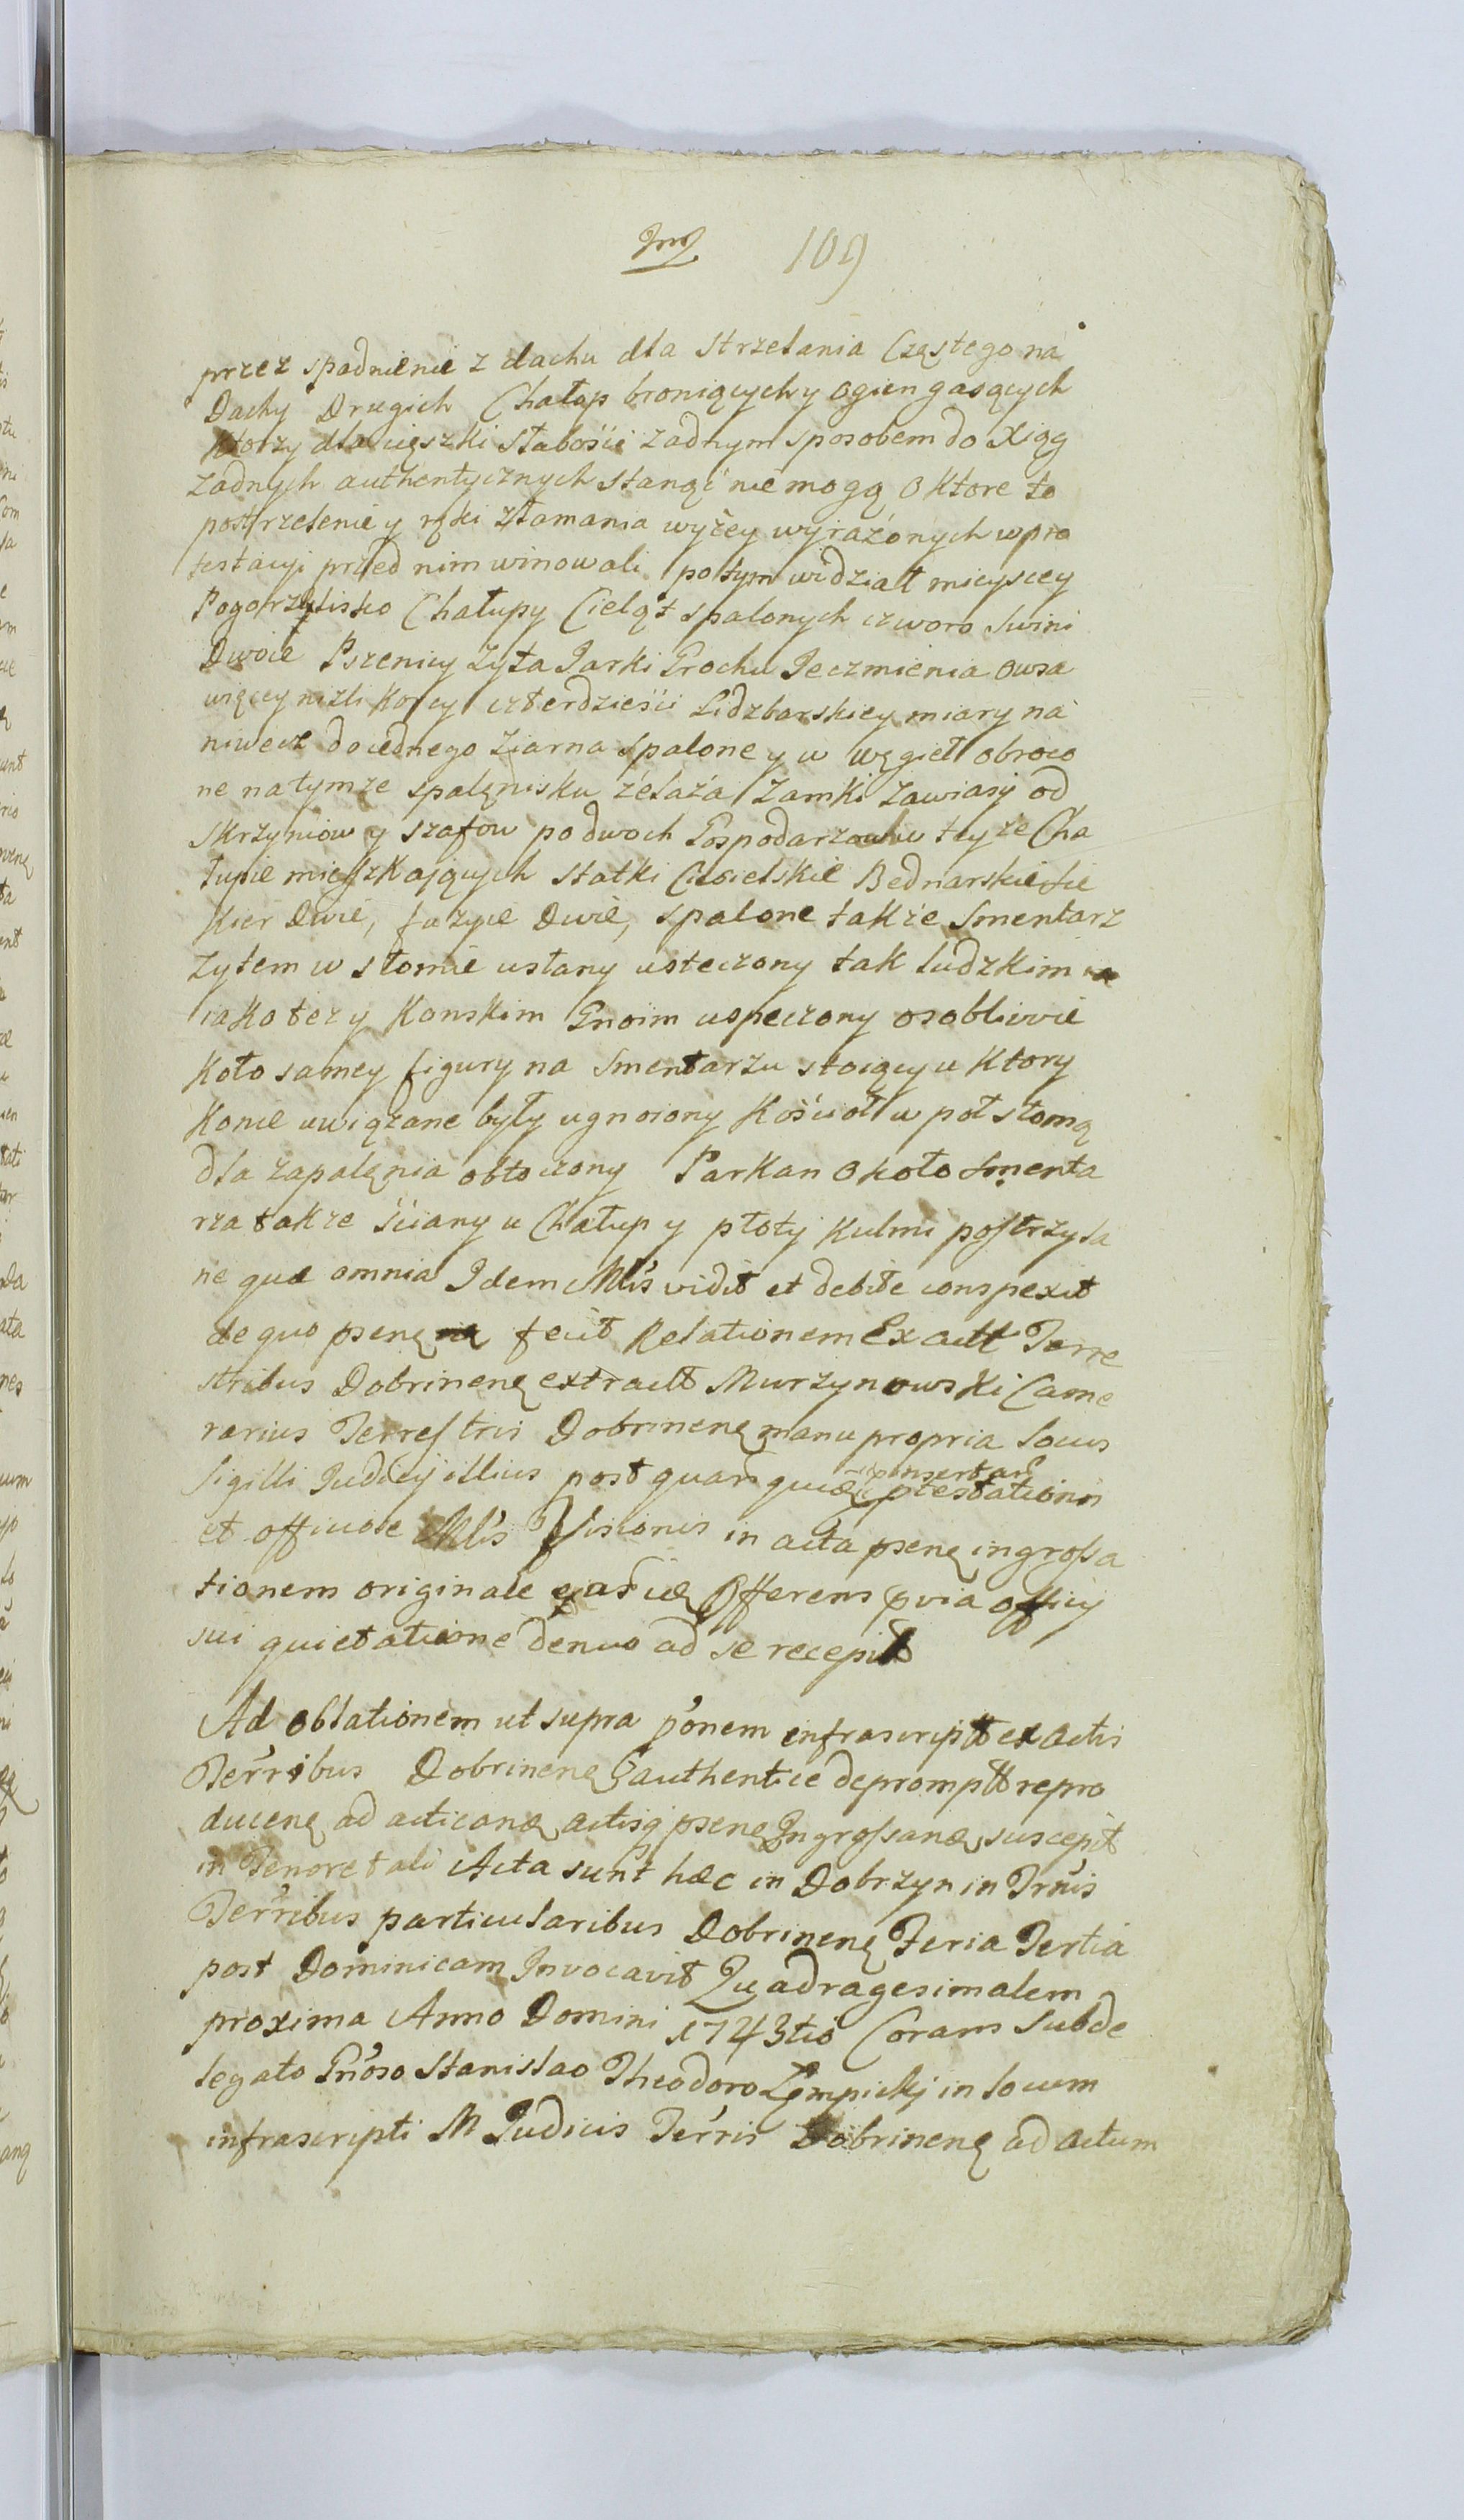 109
przez spadnienie z dachu dla strzelania Częstego na
Dachy Drugich Chałup broniących y ogien gasących
Ktorzy dla cięszki słabośći zadnym sposobem do Xiąg
zadnych authentycznych stanąć nie mogą o Ktore to
postrzelenie y ręki złamania wyżey wyrażonych w pro
testacyi przed nim winowali potym widział mieyscey
Pogorzylisko Chałupy Cieląt spalonych czworo Swini
Dwoie Pszenicy Zyta Jarki Grochu Jeczmienia Owsa
więcey nizli Korcy czterdzieśći Lidzbarskiey miary na
niwecz do iednego ziarna spalone y w węgieł obroco
ne na tymze spalęnisku żelaża Zamki Zawiasy od
skrzyniow y szafow po dwoch Gospodarzow w teyże Cha
łupie mieszkających statki Ciesielskie Bednarskie Sie
Kier Dwie, fuzyie Dwie, spalone także Smentarz
zytem w słomie usłany utłeczony tak ludzkim
iako też y Konskim Gnoim uspeczony osobliwie
Koło samey figury na Smentarzu stoiący u Ktory
Konie uwiązane były ugnoiony Kośćioł w poł słomą
dla zapalęnia obtoczony Parkan Około Smenta
rza także śćiany u Chałup y płoty Kulmi postrzyla
ne quæ omnia Idem Mlis vidit et debite conspexit
de quo psenę fecit Relationem Ex actt Terre
stribus Dobrinenę extractt Murzynowski Came
rarius Terrestris Dobrinenę manu propria Locus
Sigilli Judicij illius post quar quidę insertar ptestationis
et officiose Mlis Visionis in acta psenę ingrossa
tionem originale earudę Offerens pvia officij
sui quietatione denuo ad se recepit
Ad oblationem ut supra p'onem infrascriptt ex actis
Terribus Dobrinenę authentice depromptt repro
ducenę ad acticanđ actisq psenę Ingrossanđ suscepit
in Tenore tali Acta sunt hæc in Dobrzyn in Trnis
Terribus particularibus Dobrinenę Feria Tertia
post Dominicam Invocavit Quadragesimalem
proxima Anno Domini 1743tio Coram Subde
legato Gnoso Stanislao Theodoro Lempickj in locum
infrascripti M Judicis Terris Dobrinenę ad actum